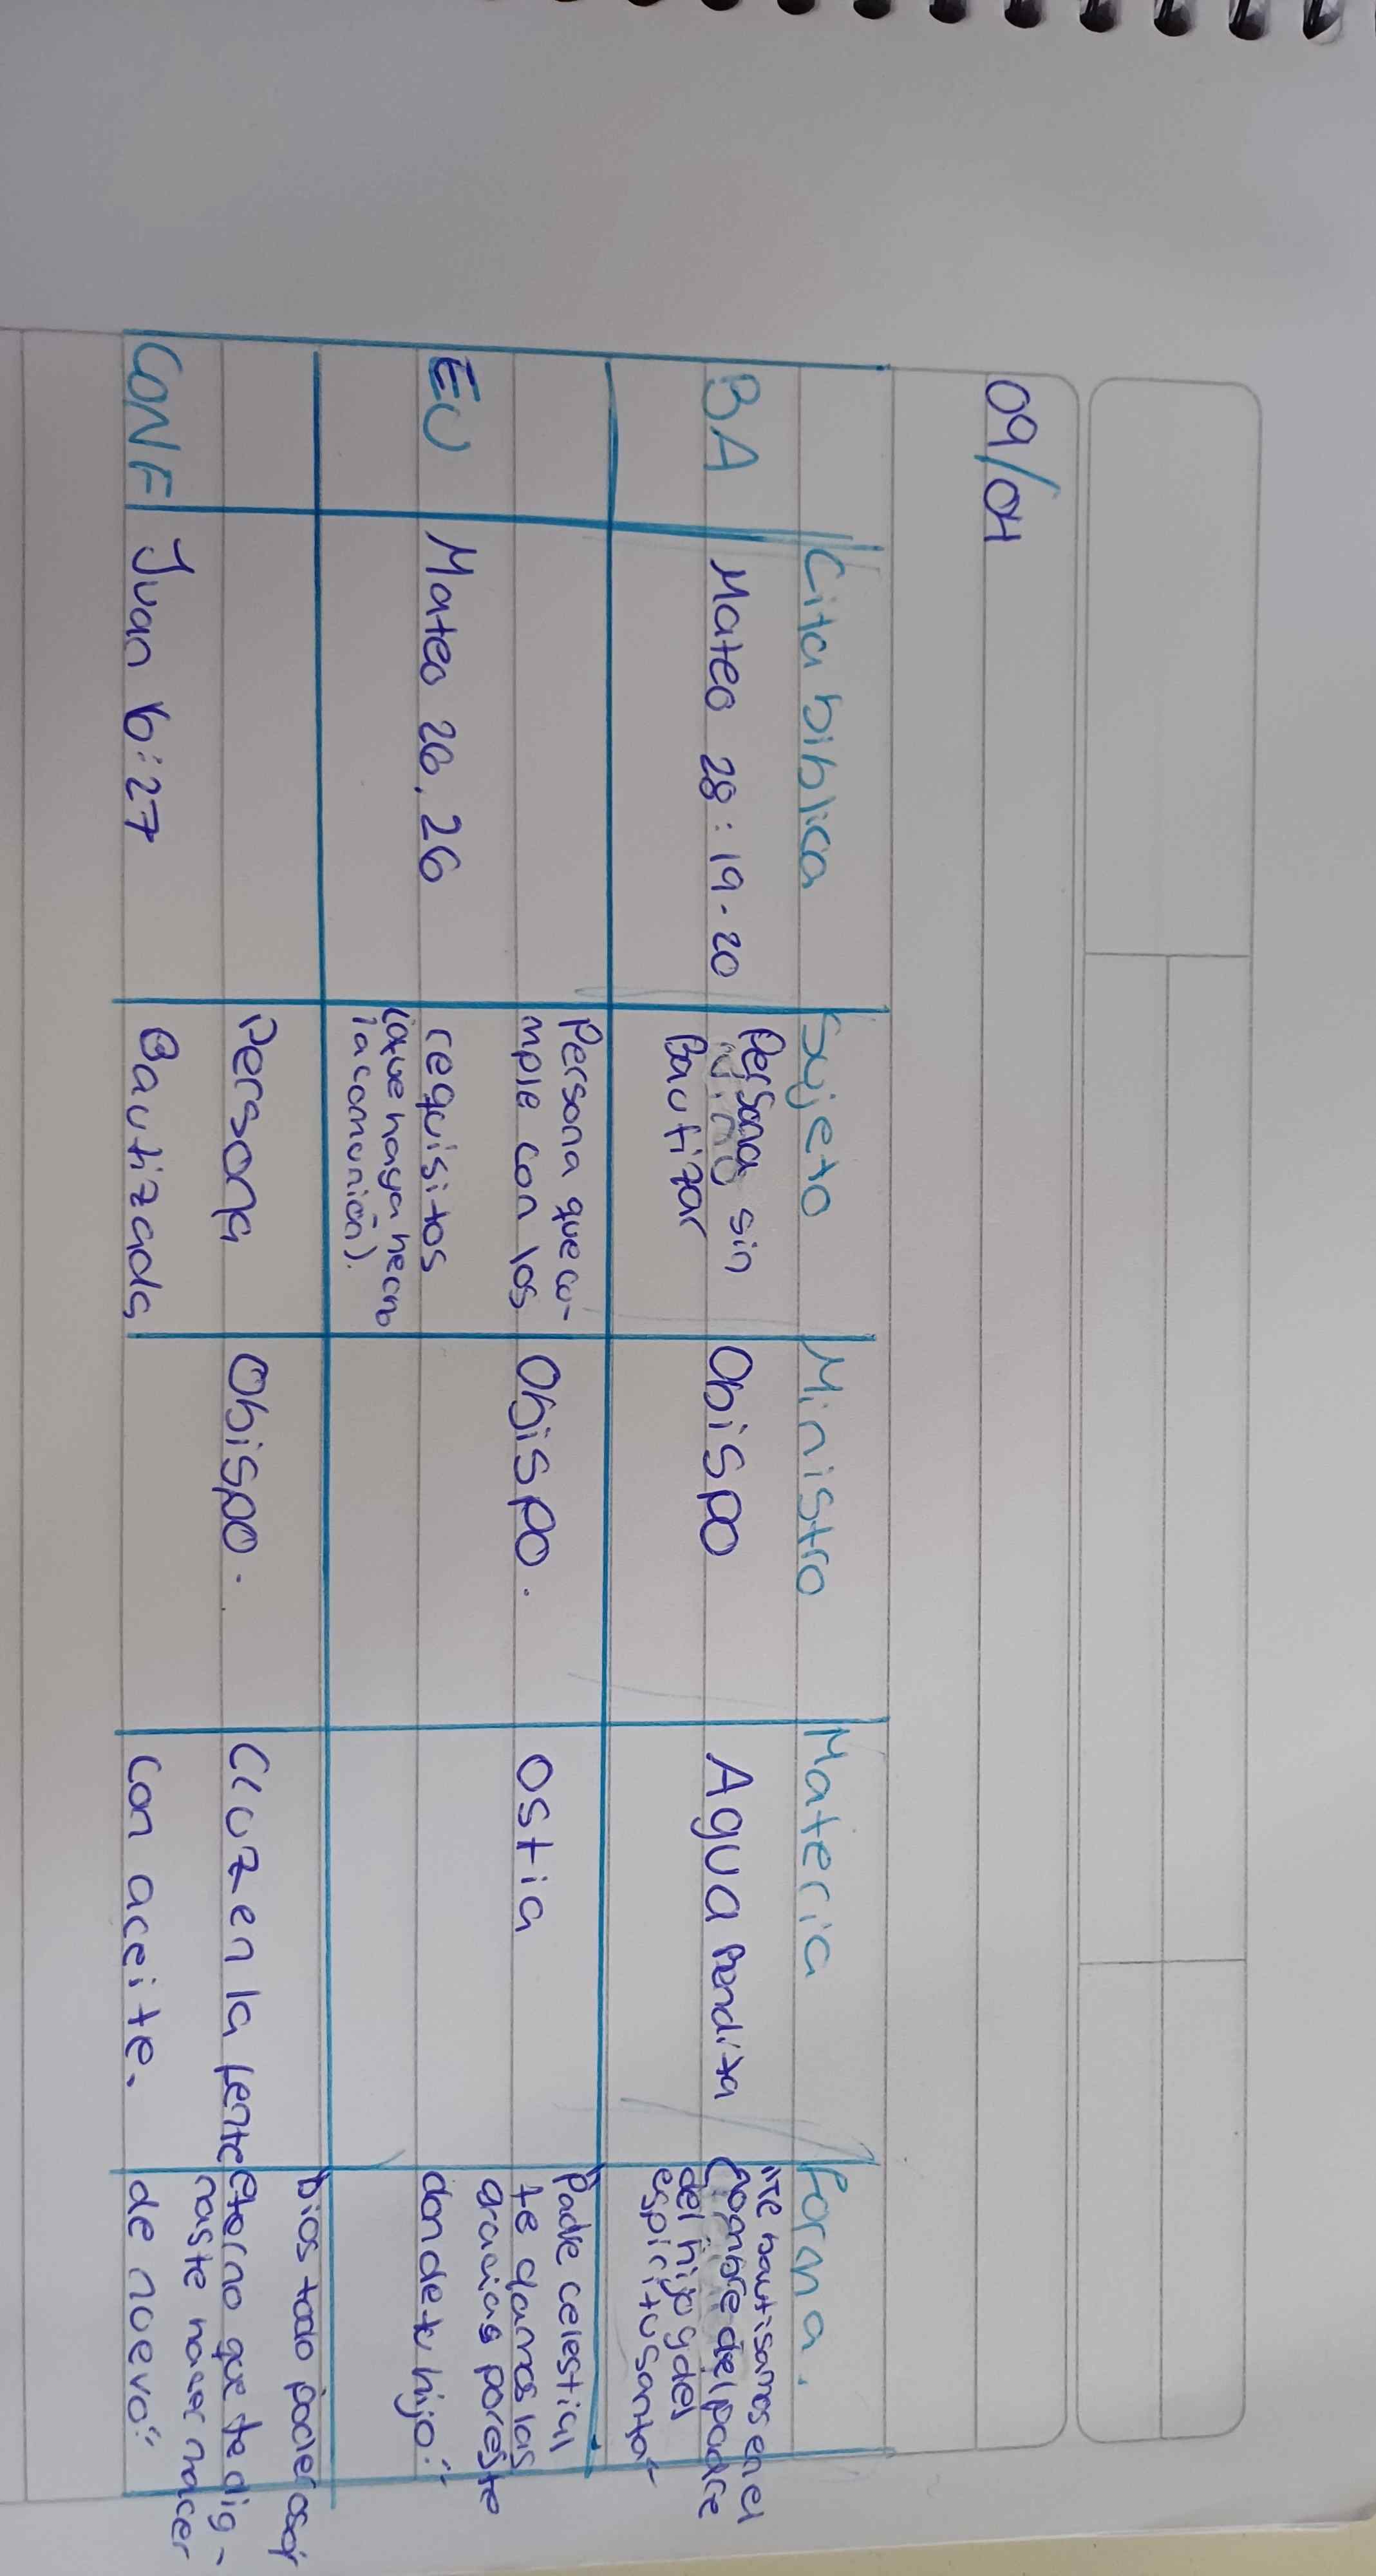 09/04
Cita biblica Sujeto Ministro Materia Forma.
BA Mateo 28:19-20 Persona sin Obispo Agua Bendita "Te bautisamos en el
Bautizar nombre del padre
del hijo y del
espiritu santo"
EU Mateo 26,26 Persona que cu- Obispo. Ostia Padre celestial
mple con los te damos las
requisitos gracias por este
(que haya hecho don de tu hijo."
la comunión).
CONF Juan 6:27 Persona Obispo. Cruz en la frente "Dios todo poderoso y
Bautizada con aceite. eterno que te dig-
naste hacer nacer
de nuevo."